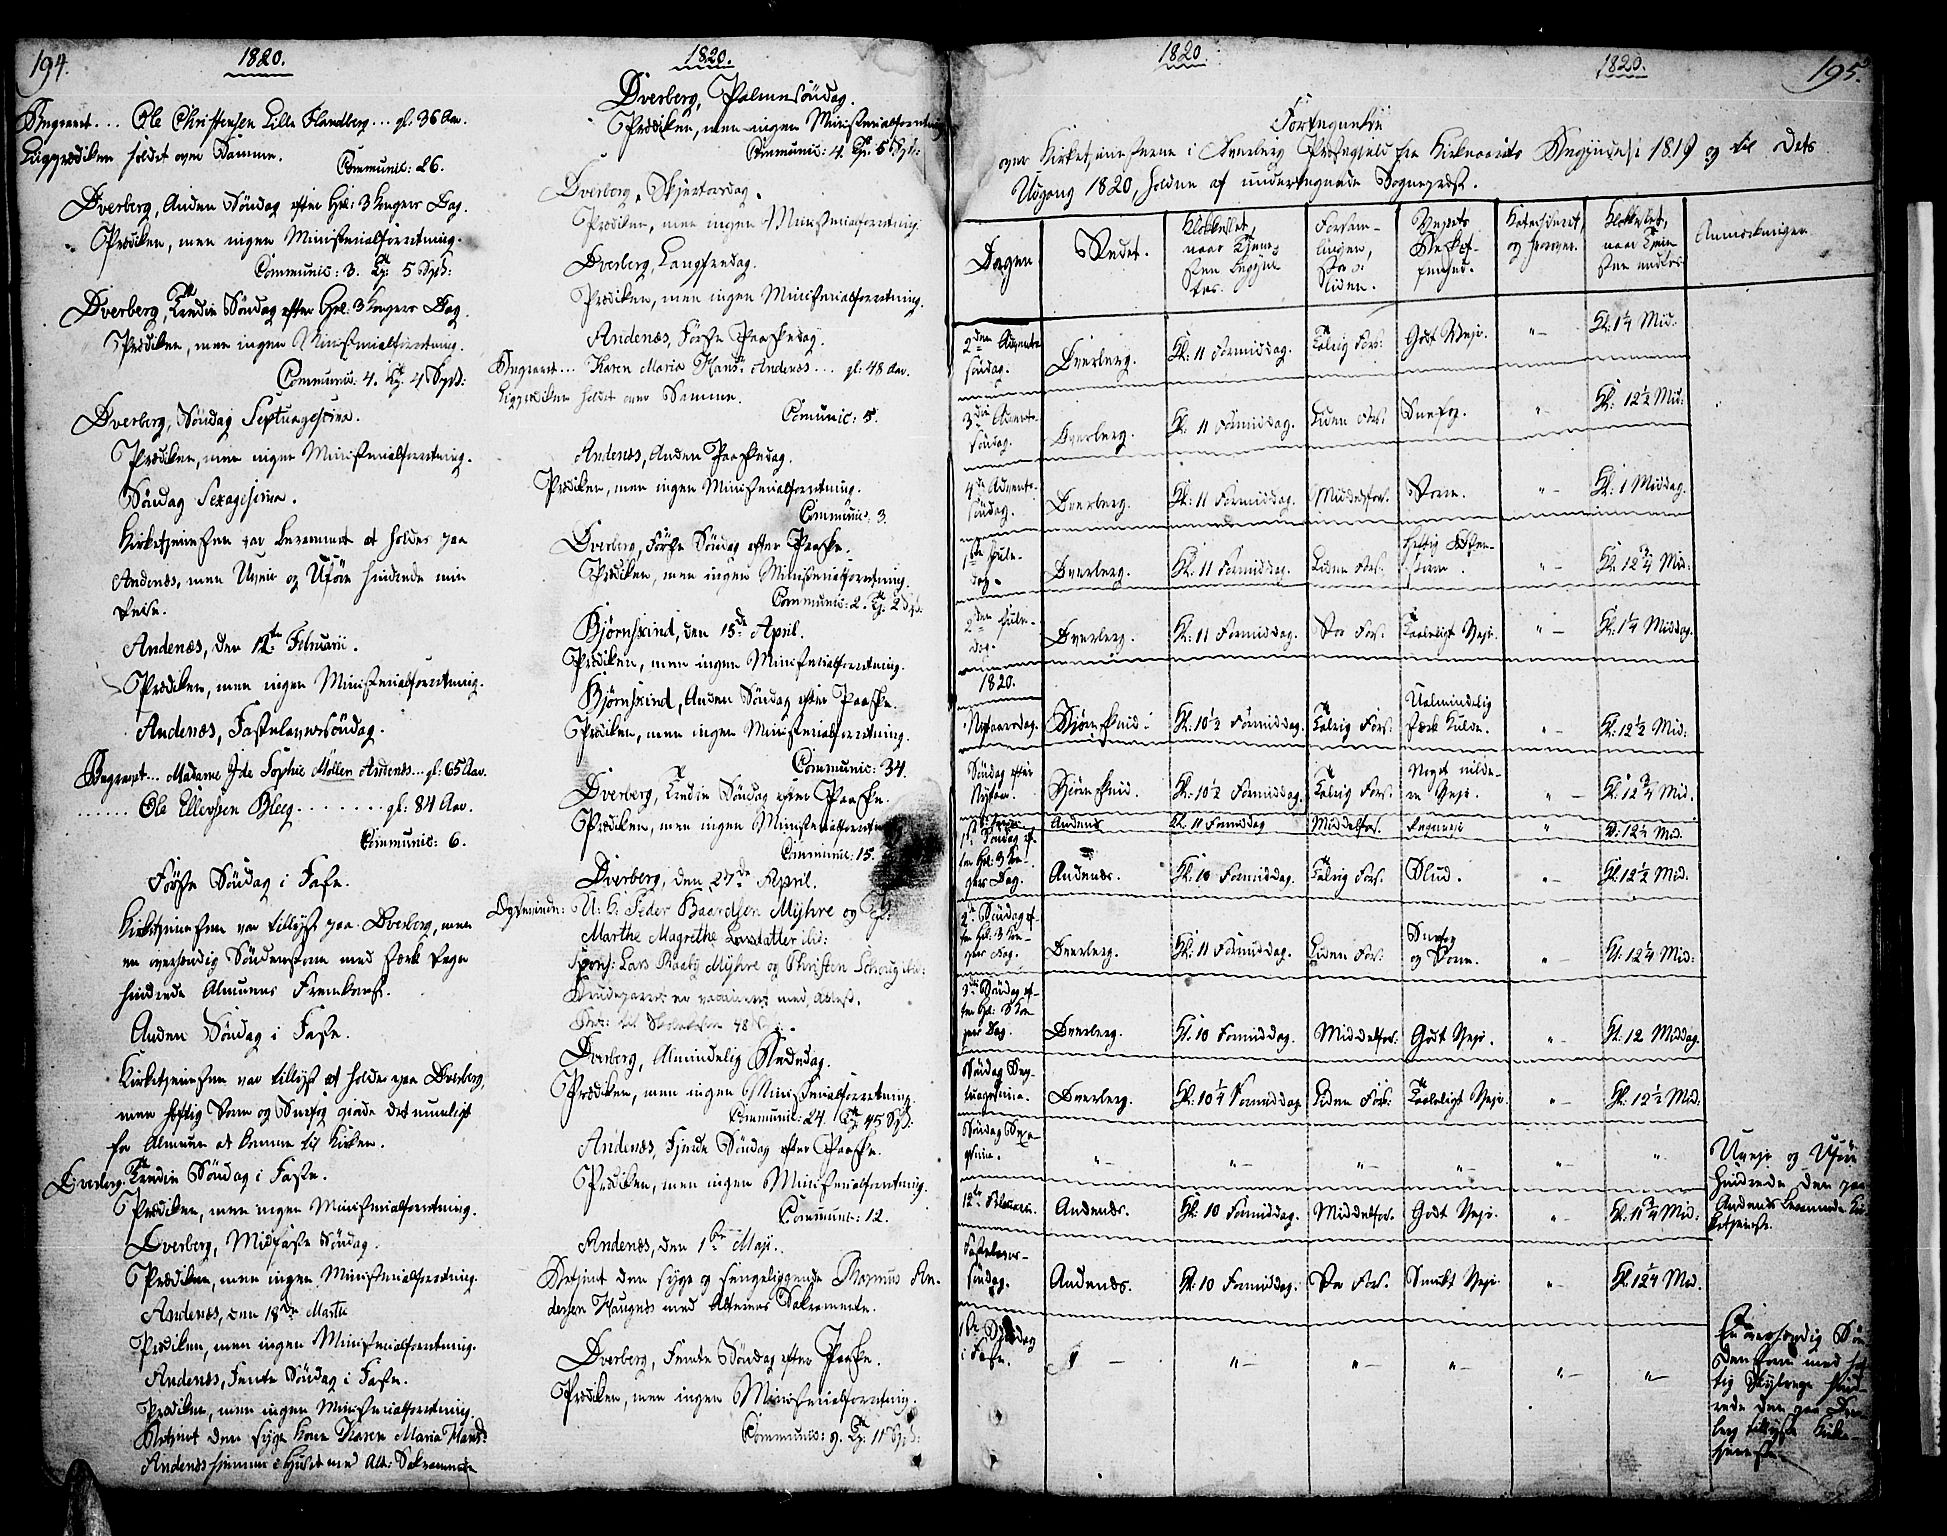 194.
1820.
Begravet... Ole Christensen Lille Flandberg... gl: 36 Aar.
Ligprædiken holdet over Samme.
Communic: 26.
Dverberg, Anden Söndag efter Hel: 3 Kongers Dag.
Prædiken, men ingen Ministerialforretning.
Communic: 3. 5 Spd:
Dverberg, Tredie Söndag efter Hel: 3 Kongers Dag.
Prædiken, men ingen Ministerialforretning.
Communic: 4. 4 Spd:
Dverberg, Söndag Septuagesima.
Prædiken, men ingen Ministerialforretning.
Söndag Sexagesima.
Kirketjenesten var berammet at holdes paa
Andenæs, men Uveir og Uföre hindrede min
Reise.
Andenæs, den 12te Februarii.
Prædiken, men ingen Ministerialforretning.
Andenæs, Fastelavnssöndag.
Begravet... Madame Ide Sophie Möllen Andenæs... gl: 65 Aar.
...... Ole Ellevsen Bleeg........ gl: 84 Aar.
Communic: 6.
Förste Söndag i Faste.
Kirketjenesten var tillyst paa Dverberg, men
en overhændig Söndenstorm med stærk Regn
hindrede Almuens Fremkomst.
Anden Söndag i Faste.
Kirketjenesten var tillyst at holdes paa Dverberg,
men heftig Storm og Snefog giorde det umuligt
for Almuen at komme til Kirken.
Dverberg, Tredie Söndag i Faste.
Prædiken, men ingen Ministerialforretning.
Dverberg, Midfaste Söndag.
Prædiken, men ingen Ministerialforretning.
Andenæs, den 18de Martii
Prædiken, men ingen Ministerialforretning.
Andenæs, Femte Söndag i Faste.
Prædiken, men ingen Ministerialforretning.
Betjent den syge Kone Karen Maria Hansd:
Andenæs hiemme i Huset med Alt: Sakramente
1820.
Dverberg, Palmesöndag.
Prædiken, men ingen Ministerialforretning
Communic: 4. 5 Spd:
Dverberg, Skjertorsdag.
Prædiken, men ingen Ministerialforretning.
Dverberg, Langfredag.
Prædiken, men ingen Ministerialforretning.
Andenæs, Förste Paaskedag.
Begravet... Karen Maria Hansd: Andenæs... gl: 48 Aar.
Ligprædiken holdet over Samme.
Comunic: 5.
Andenæs, Anden Paaskedag.
Prædiken, men ingen Ministerialforretning.
Communic: 3.
Dverberg, Förste Söndag efter Paaske.
Prædiken, men ingen Ministerialforretning.
Communic: 2. 2 Spd:
Björnskind, den 15de April.
Prædiken, men ingen Ministerialforretning.
Björnskind, Anden Söndag efter Paaske.
Prædiken, men ingen Ministerialforretning.
Communic: 34.
Dverberg, Tredie Söndag efter Paaske.
Prædiken, men ingen Ministerialforretning
Communic: 15.
Dverberg, den 27de April.
Copulerede: U: K: Peder Baardsen Myhre og
Marthe Magrethe ibid:
Spons: Lars Raaby Myhre og Christen ibid:
Brudeparret er vaccineret med, Attest.
Dverberg, Almindelig Bededag.
Prædiken, men ingen Ministerialforretning.
Communic: 24. 45 Spd:
Andenæs, Fjerde Söndag efter Paaske.
Prædiken, men ingen Ministerialforretning.
Communic: 12.
Andenæs, den 1ste Maji.
Betjent den syge og sengeliggende Rasmus An-
dersen Haugnæs med Alterens Sakramente.
Dverberg, Femte Söndag efter Paaske.
Prædiken, men ingen Ministerialforretning.
Communic: 9. 11 Spd:
1820
1820.
195.
Fortegnelse
over Kirketjenesterne i Dverberg Præstegield fra Kirkeaarets Begyndelse 1819 og til dets
Udgang 1820, holdne af undertegnede Sognepræst.
Dagen | Stedet. | Klokkeslet, naar Tjenesten begyndtes. | Forsamlingen, stor o: liden. | Veirets Beskaffenhed. | Katechiseret, og hvorover. | Klokkeslet, naar Tjenesten endtes | Anmærkninger
2den Advents söndag. | Dverberg. | Kl: 11 Formiddag. | Talrig Fors: | Godt Veir. | "– | Kl: 1¼ Mid:
3die Advents söndag. | Dverberg. | Kl: 11 Formiddag. | Liden Fors: | Snefog. | "– | Kl: 12½ Mid:
4de Advents söndag. | Dverberg. | Kl: 11 Formiddag. | Middelfors. | Storm. | "– | Kl: 1 Middag.
1ste Juledag. | Dverberg. | Kl: 11 Formiddag. | Liden Fors: | Heftig Östenstorm. | "– | Kl: 12¾ Mid:
2den Juledag. | Dverberg. | Kl: 11 Formiddag. | Stor Fors. | Taaleligt Veir. | "– | Kl: 1¼ Middag.
1820.
Nytaarsdag. | Björnskind. | Kl: 10½ Formiddag. | Talrig Fors: | Ualmindelig stærk Kulde. | "– | Kl: 12½ Mid:
Söndag efter Nytaar. | Björnskind. | Kl: 10½ Formiddag. | Talrig Fors: | Noget mildere Veir. | "– | Kl: 12¾ Mid.
Andenæs | Kl. 11 Formiddag | Middelfors. | Regnveir | " | Kl: 12½ Mid.
1ste Söndag efter Hel: 3 Kongers Dag. | Andenæs. | Kl: 10 Formiddag. | Talrig Fors. | Slud. | "– | Kl: 12½ Mid.
2den Söndag efter Hel: 3 Kongers Dag. | Dverberg. | Kl: 11 Formiddag. | Liden Fors: | Snefog og Storm. | "– | Kl: 12¼ Mid:
3die Söndag efter Hel: 3 Kongers Dag. | Dverberg. | Kl: 10 Formiddag. | Middelfors: | Godt Veir. | "– | Kl: 12 Middag.
Söndag Septuagesima. | Dverberg. | Kl: 10½ Formiddag | Liden Fors: | Taaleligt Veir. | "– | Kl: 12½ Mid.
Söndag Sexagesima. | "– | "– | "– | "– | "– | " | Uveir og Uföre hindrede den paa Andenæs berammede Kirketjeneste.
12te Februarii. | Andenæs. | Kl: 10 Formiddag. | Middelfors. | Godt Veir. | "– | Kl: 11¾ Mid:
Fastelavnssöndag. | Andenæs. | Kl: 10 Formiddag. | Stor Fors. | Smukt Veir | "– | Kl: 12¼ Mid.
1ste Söndag i Faste. | "– | "– | "– | "– | "– | "– | En overhændig Söndenstorm med heftig hindrede den paa Dverberg tillyste Kirketjeneste.